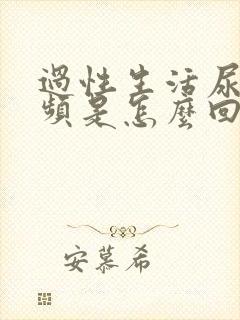 過性生活尿
頻是怎麼回
安慕希